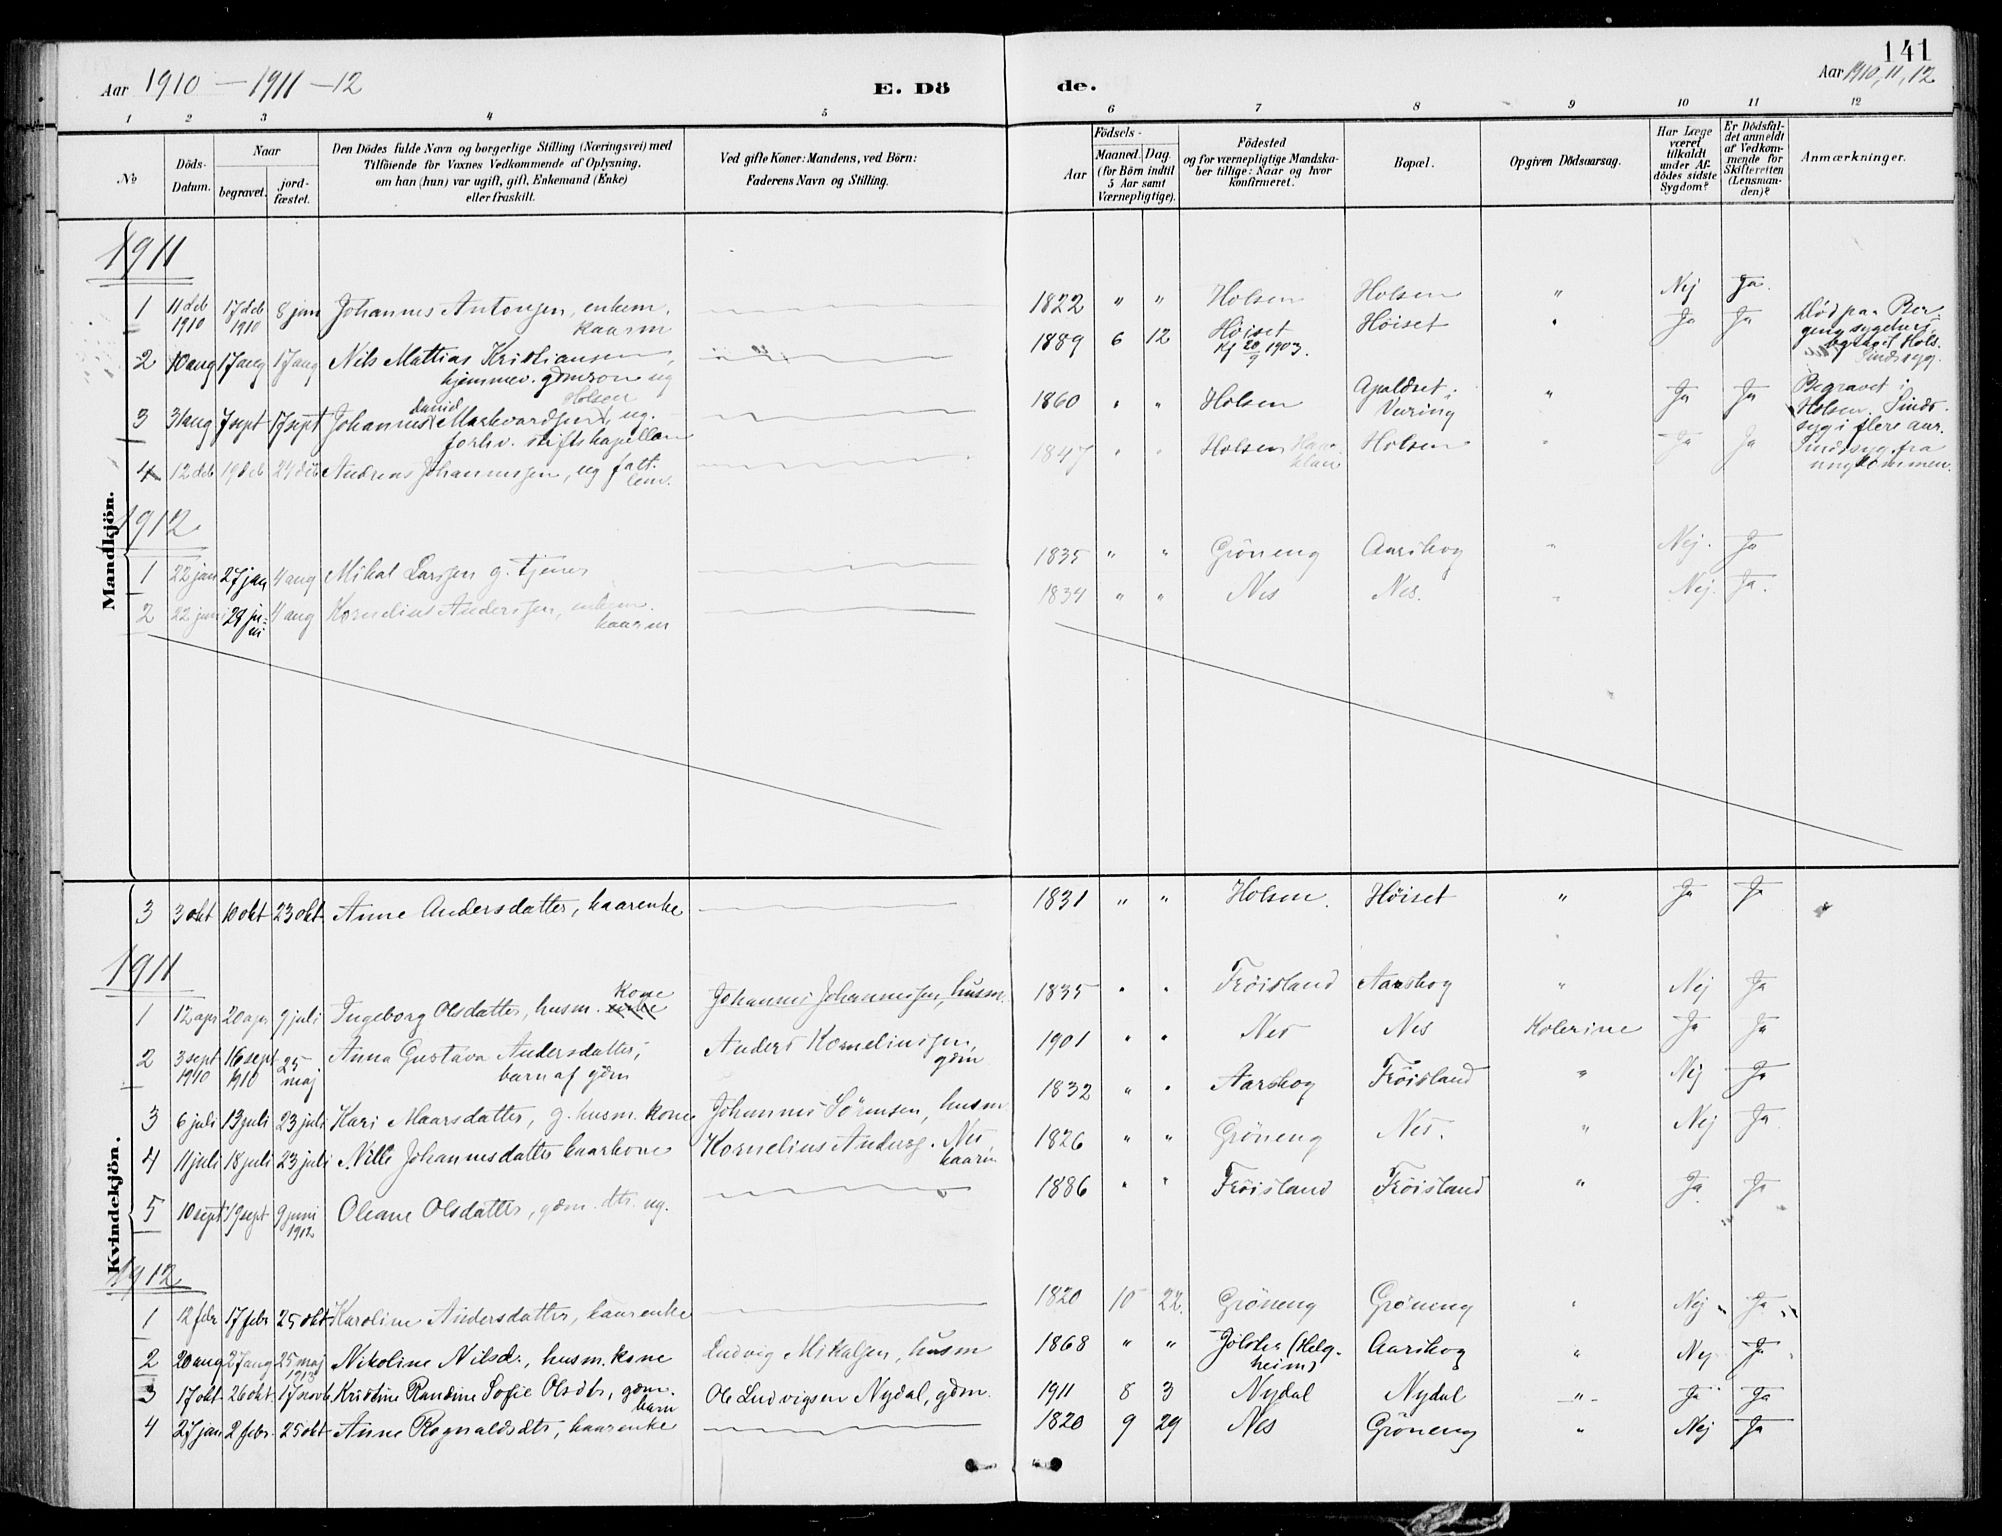 141
Aar 1910 — 1911 — 12
E. Dö
de.
Aar 1910, 11, 12
1 2 3 4 5 6 7 8 9 10 11 12
No
Döds-Datum.
Naar
begravet.
jord-fæstet.
Den Dödes fulde Navn og borgerlige Stilling (Næringsvei) med
Tilföiende for Voxnes Vedkommende af Oplysning,
om han (hun) var ugift, gift, Enkemand (Enke)
eller fraskilt.
Ved gifte Koner: Mandens, ved Börn:
Faderens Navn og Stilling.
Födsels-
Aar
Maaned. Dag.
(for Börn indtil
5 Aar samt
Værnepligtige).
Födested
og for værnepligtige Mandska-
ber tillige: Naar og hvor
konfirmeret.
Bopæl.
Opgiven Dödsaarsag.
Har Læge
været
tilkaldt
under Af-
dödes sidste
Sygdom?
Er Dödsfal-
det anmeldt
af Vedkom-
mende for
Skifteretten
(Lensman-
den)?
Anmærkninger.
Mandkjön.
1911
1 11 deb 1910 17 deb 1910 8 jan Johannes Antonsen, enkem. kaarm 1822 " " Holsen Holsen " Nej Ja.
2 10 aug 17 aug 17 aug Nils Mattias Kristiansen, hjemmev. gdmson ug 1889 6 12 Höiset Kf 20/9 1903. Höiset " Ja Ja Död paa Ber-
gens sygehus,
begravet Hols.
Sindssyg.
3 31 aug 7 sept 17 sept Johannes David Markvardsen Holsen, ug. forhv. stiftskapellan 1860 " " Holsen Apaldset i Væring " Ja Ja Begravet i
Holsen. Sinds-
syg i flere aar.
4 12 deb 19 deb 24 deb Andreas Johannessen, ug fatt. lem. 1847 " " Holsen Holsen " Ja Ja Sindssyg fra
ungdommen.
1912
1 22 jan 27 jan 4 aug Mikal Larssen g. tjener 1835 " " Gröneng Aarskog " Nej. Ja
2 22 juni 28 juni 4 aug Kornelius Anderssen, enkem. kaarm 1834 " " Nes Nes. " Nej. Ja.
Kvindekjön.
3 3 okt 10 okt 23 okt Anne Andersdatter, kaarenke 1831 " " Holsen. Höiset " Ja Ja
1911
1 12 apr 20 apr 9 juli Ingeborg Olsdatter, husm. kone Johannes Johannessen, husm. 1835 " " Fröisland Aarskog " Nej Ja
2 3 sept 1910 16 sept 1910 25 maj Anna Gustava Andersdatter, barn af gdm Anders Korneliussen, gdm 1901 " " Nes Nes Kolerine Ja Ja
3 6 juli 13 juli 23 juli Kari Maarsdatter, g. husm. kone Johannes Sörensen, husm 1832 " " Aarskog Fröisland " Nej Ja
4 11 juli 18 juli 23 juli Nille Johannesdatter kaarkone Kornelius Anders. Nes kaarm 1826 " " Gröneng Nes. " Nej Ja.
5 10 sept 19 sept 9 juni 1912 Oleane Olsdatter, gdm. dtr. ug. 1886 " " Fröisland Fröisland " Ja. Ja
1912
1 12 febr 17 febr 25 okt Karoline Andersdatter, kaarenke 1820 10 22. Gröneng Gröneng " Nej Ja
2 20 aug 27 aug 25 maj 1913 Nikoline Nilsd., husm. kone Ludvig Mikalsen, husm 1868 " " Jölster (Helg-
heim) Aarskog " Nej Ja
3 17 okt 26 okt. 17 novb Kristine Randine Sofie Olsdtr, gdm. barn Ole Ludvigsen Nydal, gdm. 1911 8 3 Nydal Nydal — " — Ja Ja
4 27 jan 2 febr. 25 okt Anne Ragnaldsdtr, kaarenke 1820 9 29 Nes Gröneng " Nej Ja